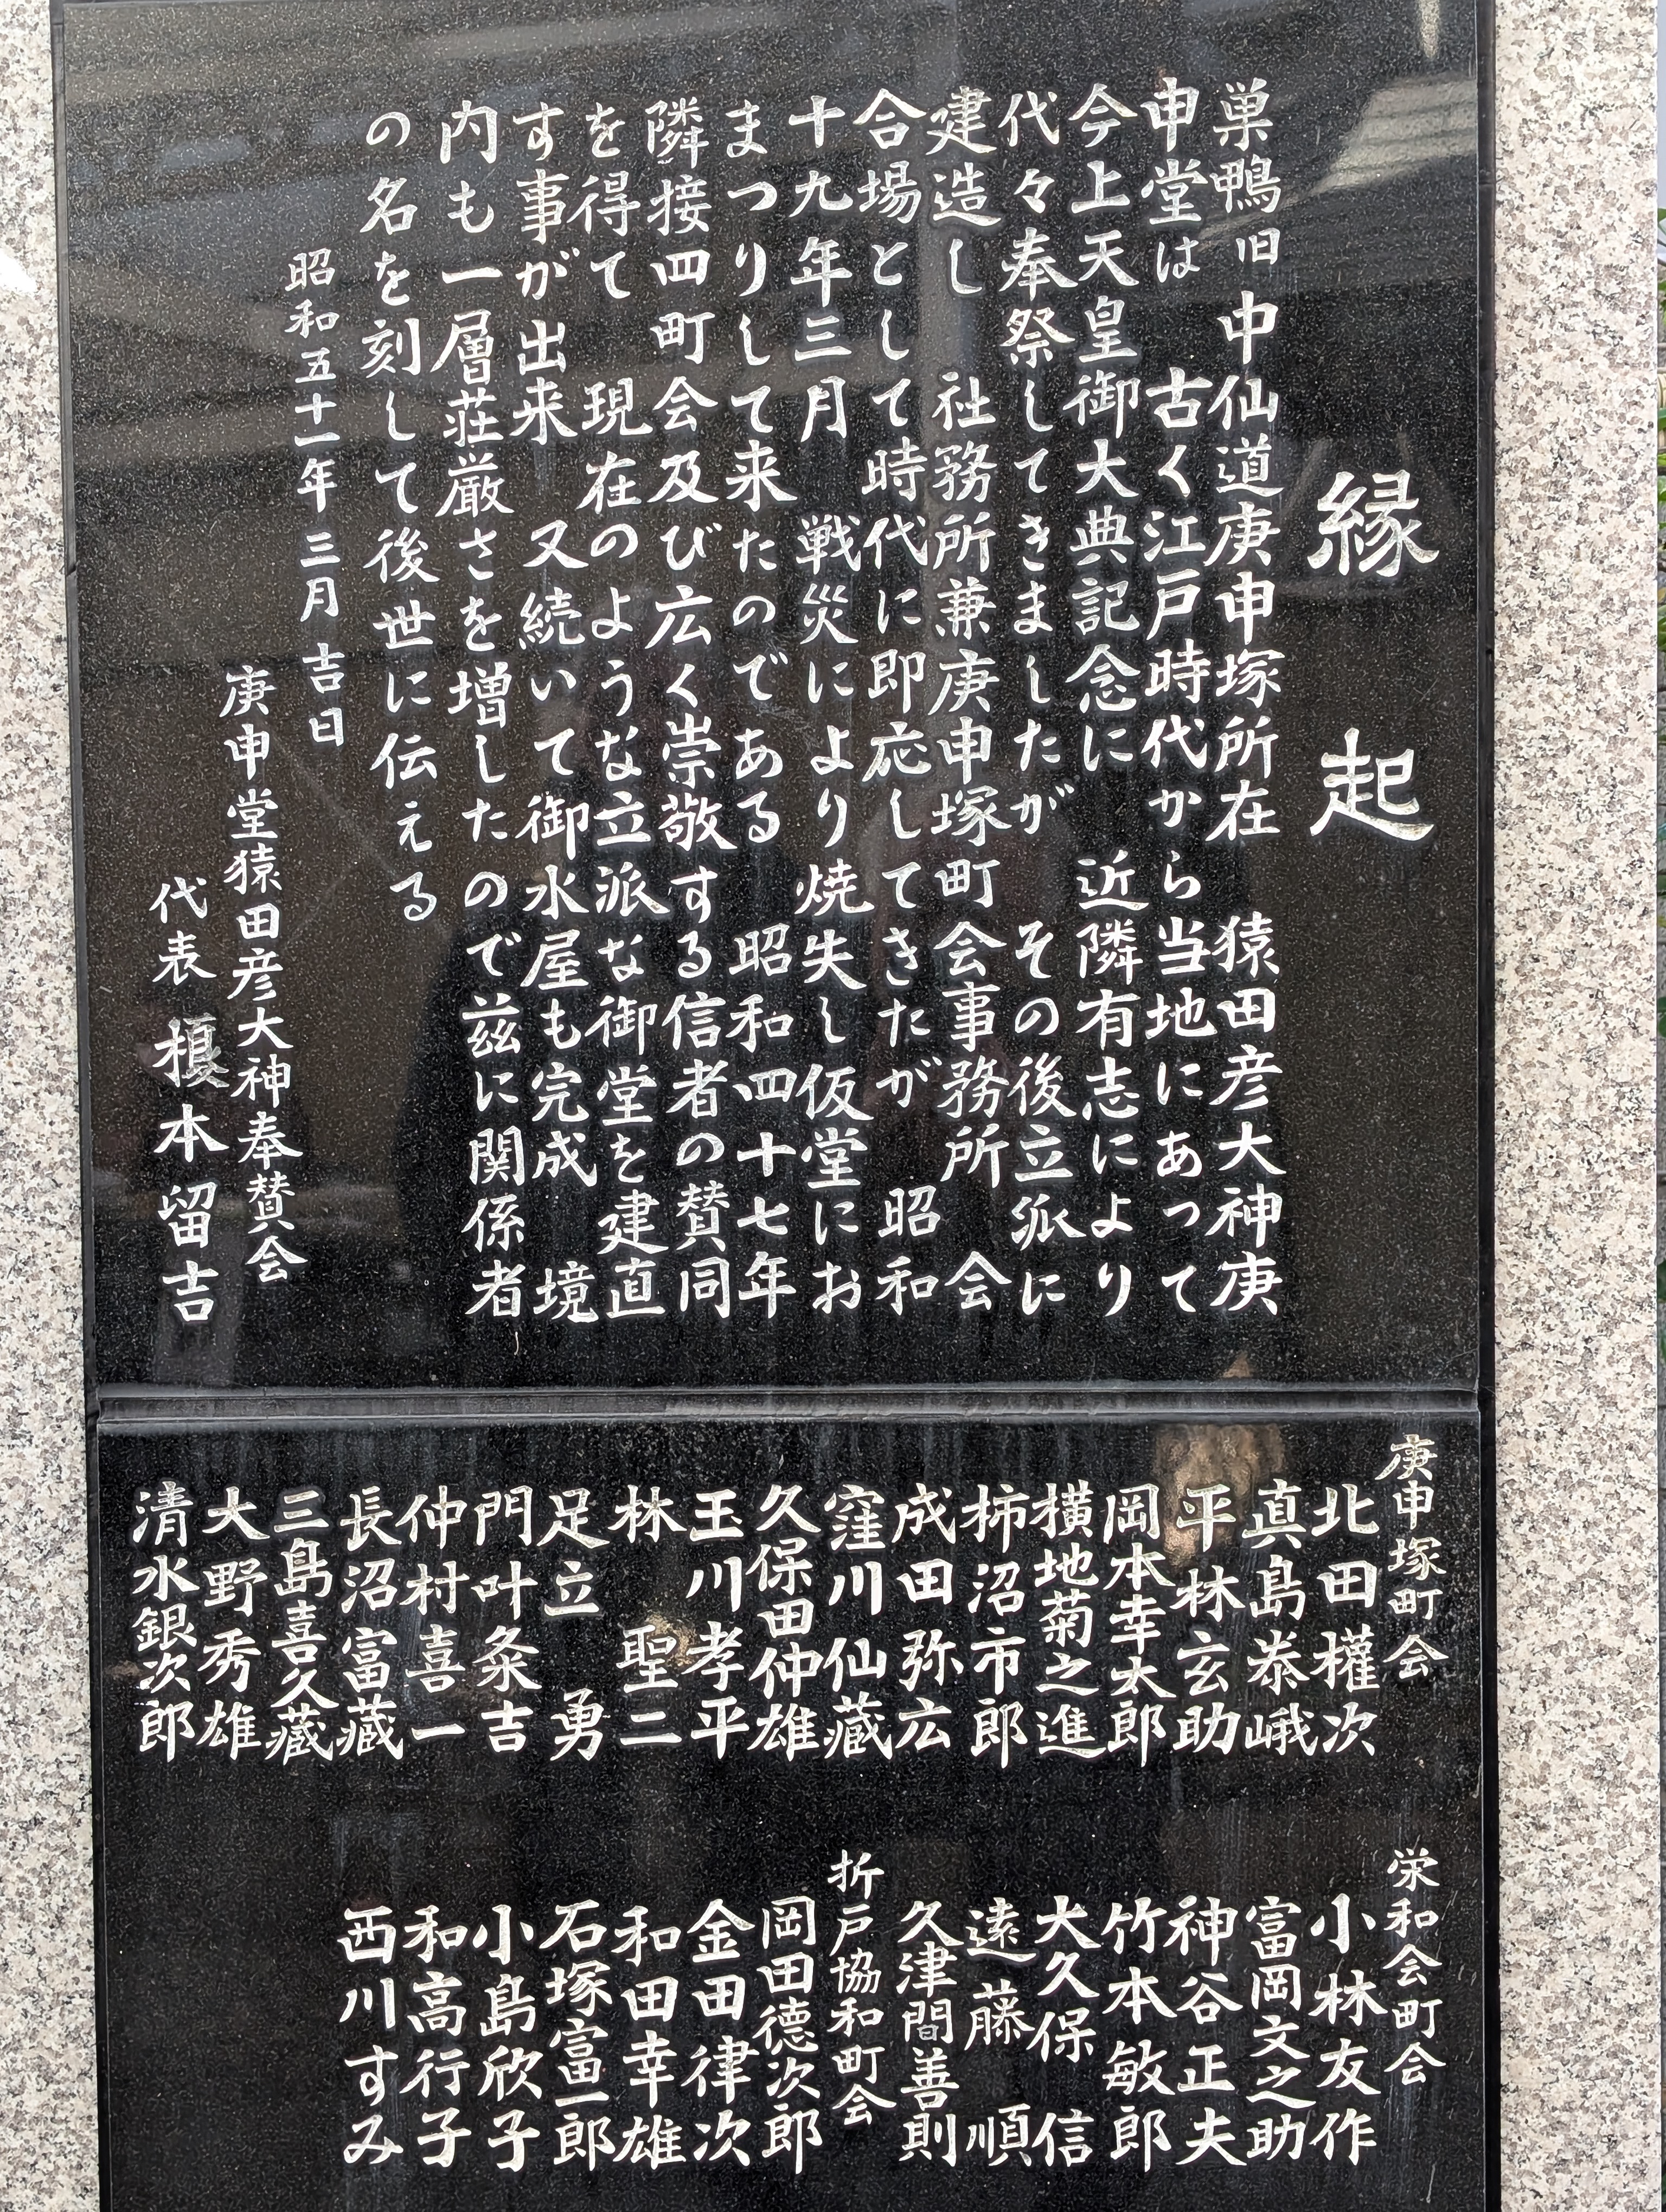 縁起
巣鴨旧中仙道庚申塚所在 猿田彦大神庚
申堂は 古く江戸時代から当地にあって
今上天皇御大典記念に 近隣有志により
代々奉祭してきましたが その後立派に
建造し 社務所兼庚申塚町会事務所 会
合場として時代に即応してきたが 昭和
十九年三月 戦災により焼失し仮堂にお
まつりして来たのである 昭和四十七年
隣接四町会及び広く崇敬する信者の賛同
を得て 現在のような立派な御堂を建直
す事が出来 又続いて御水屋も完成 境
内も一層荘厳さを増したので茲に関係者
の名を刻して後世に伝える
昭和五十一年三月吉日
庚申堂猿田彦大神奉賛会
代表 榎本留吉
庚申塚町会
北田權次
真島泰峨
平林玄助
岡本幸太郎
横地菊之進
柿沼市郎
成田弥広
窪川仙藏
久保田仲雄
玉川孝平
林聖二
足立勇
門叶粂吉
仲村喜一
長沼富藏
三島喜久藏
大野秀雄
清水銀次郎
栄和会町会
小林友作
富岡文之助
神谷正夫
竹本敏郎
大久保信
遠藤順
久津間善則
折戸協和町会
岡田徳次郎
金田律次
和田幸雄
石塚富一郎
小島欣子
和高行子
西川すみ